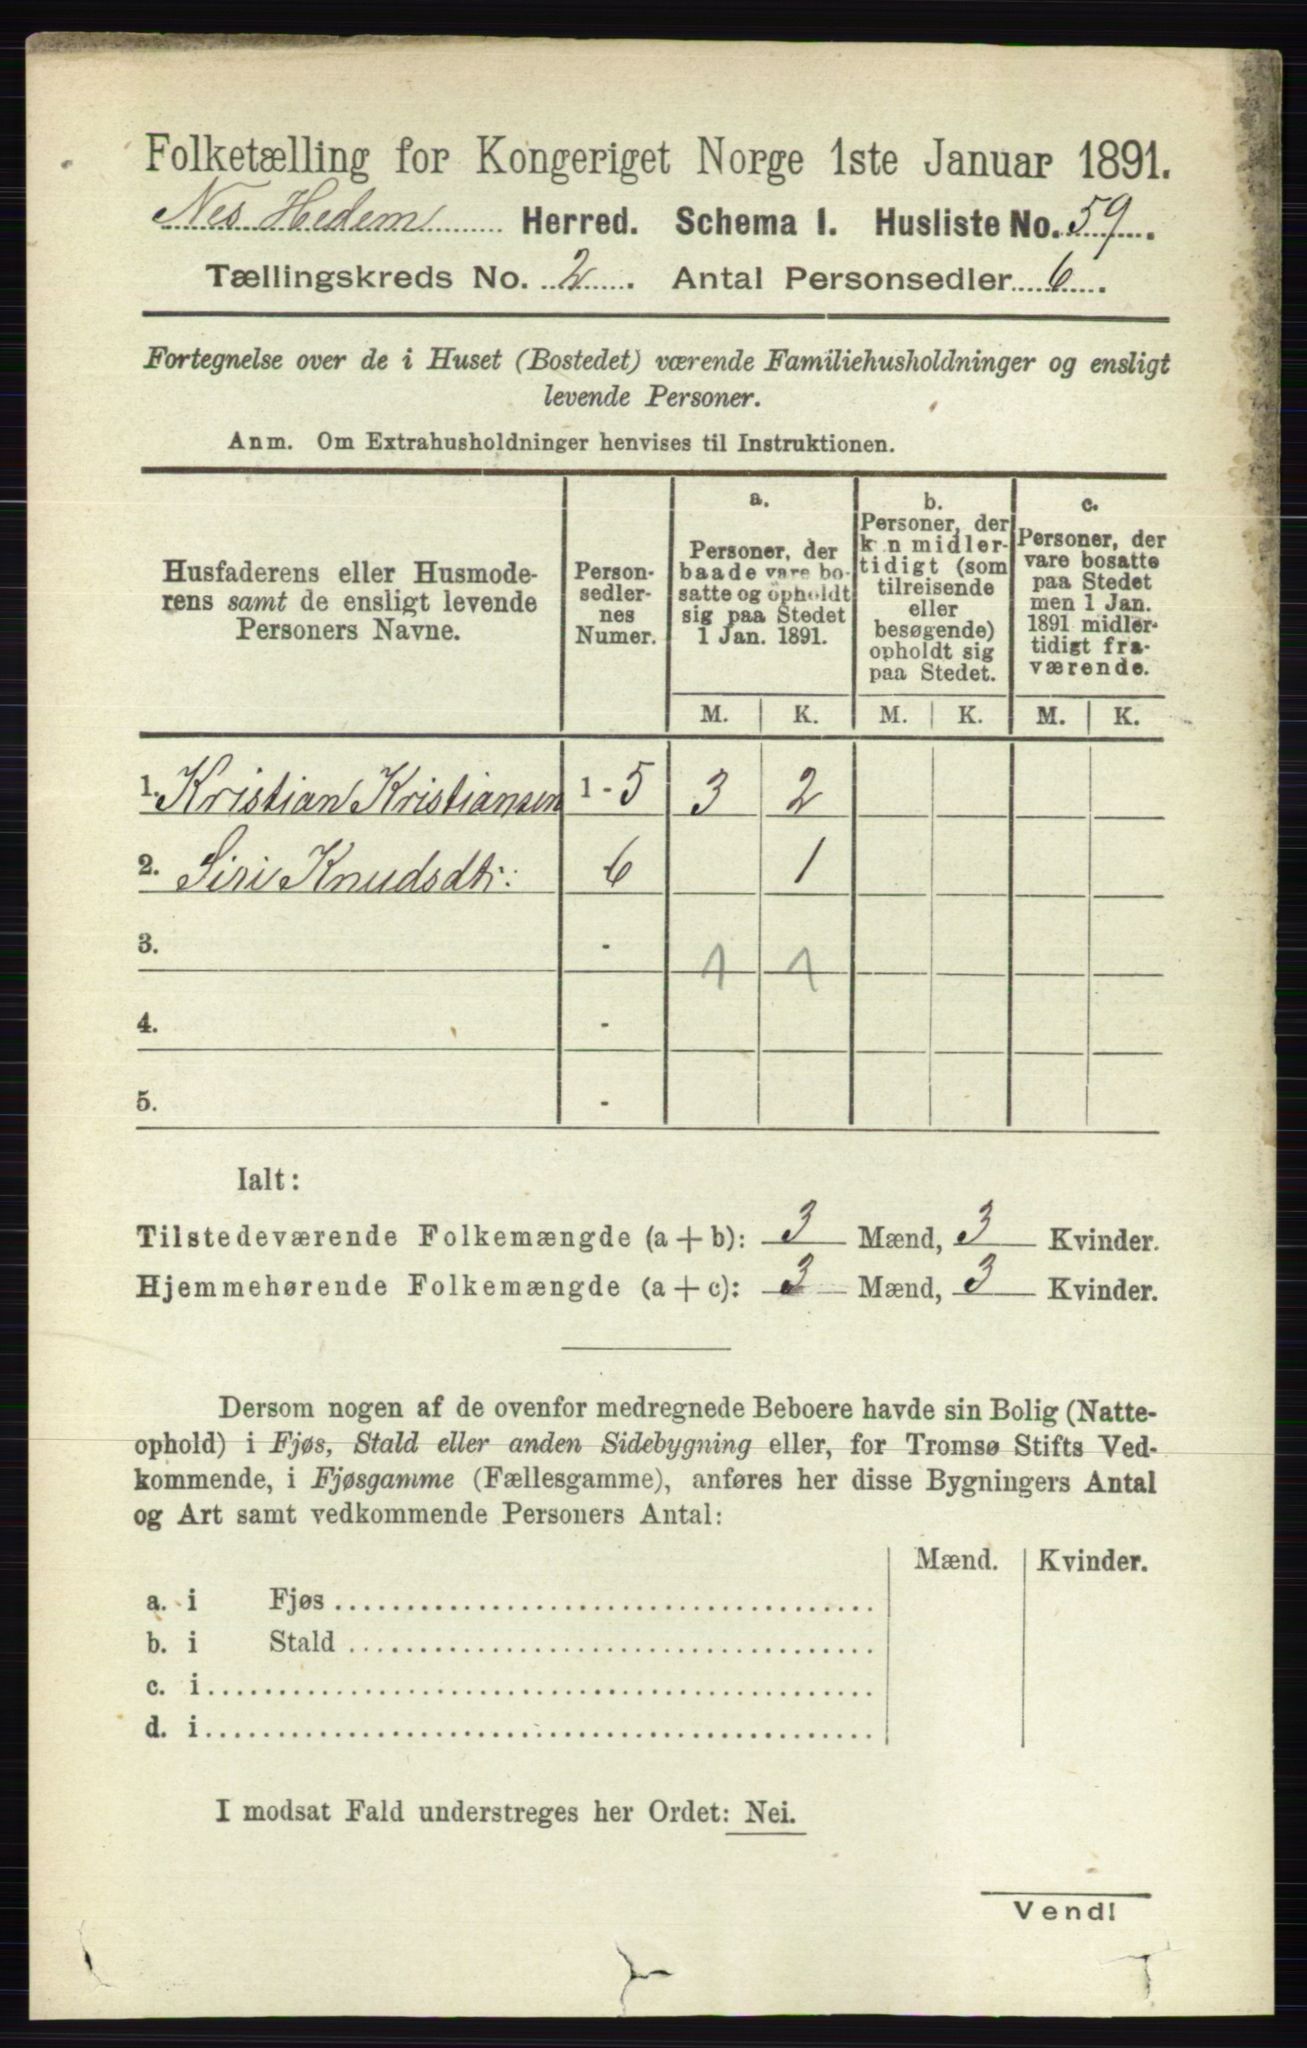 Folketælling for Kongeriget Norge 1ste Januar 1891.
Nes Hedem Herred. Schema I. Husliste No. 59.
Tællingskreds No. 2. Antal Personsedler 6.
Fortegnelse over de i Huset (Bostedet) værende Familiehusholdninger og ensligt
levende Personer.
Anm. Om Extrahusholdninger henvises til Instruktionen.
Husfaderens eller Husmode-
rens samt de ensligt levende
Personers Navne.
Person-
sedler-
nes
Numer.
a.
Personer, der
baade vare bo-
satte og opholdt
sig paa Stedet
1 Jan. 1891.
b.
Personer, der
kun midler-
tidigt (som
tilreisende
eller
besøgende)
opholdt sig
paa Stedet.
c.
Personer, der
vare bosatte
paa Stedet
men 1 Jan.
1891 midler-
tidigt fra-
værende.
M. K. M. K. M. K.
1. Kristian Kristiansen 1 - 5 3 2
2. Siri Knudsdtr: 6 1
3. - 1 1
4. -
5. -
Ialt:
Tilstedeværende Folkemængde (a + b): 3 Mænd, 3 Kvinder.
Hjemmehørende Folkemængde (a + c): 3 Mænd, 3 Kvinder.
Dersom nogen af de ovenfor medregnede Beboere havde sin Bolig (Natte-
ophold) i Fjøs, Stald eller anden Sidebygning eller, for Tromsø Stifts Ved-
kommende, i Fjøsgamme (Fællesgamme), anføres her disse Bygningers Antal
og Art samt vedkommende Personers Antal:
Mænd. Kvinder.
a. i Fjøs
b. i Stald
c. i
d. i
I modsat Fald understreges her Ordet: Nei.
Vend!